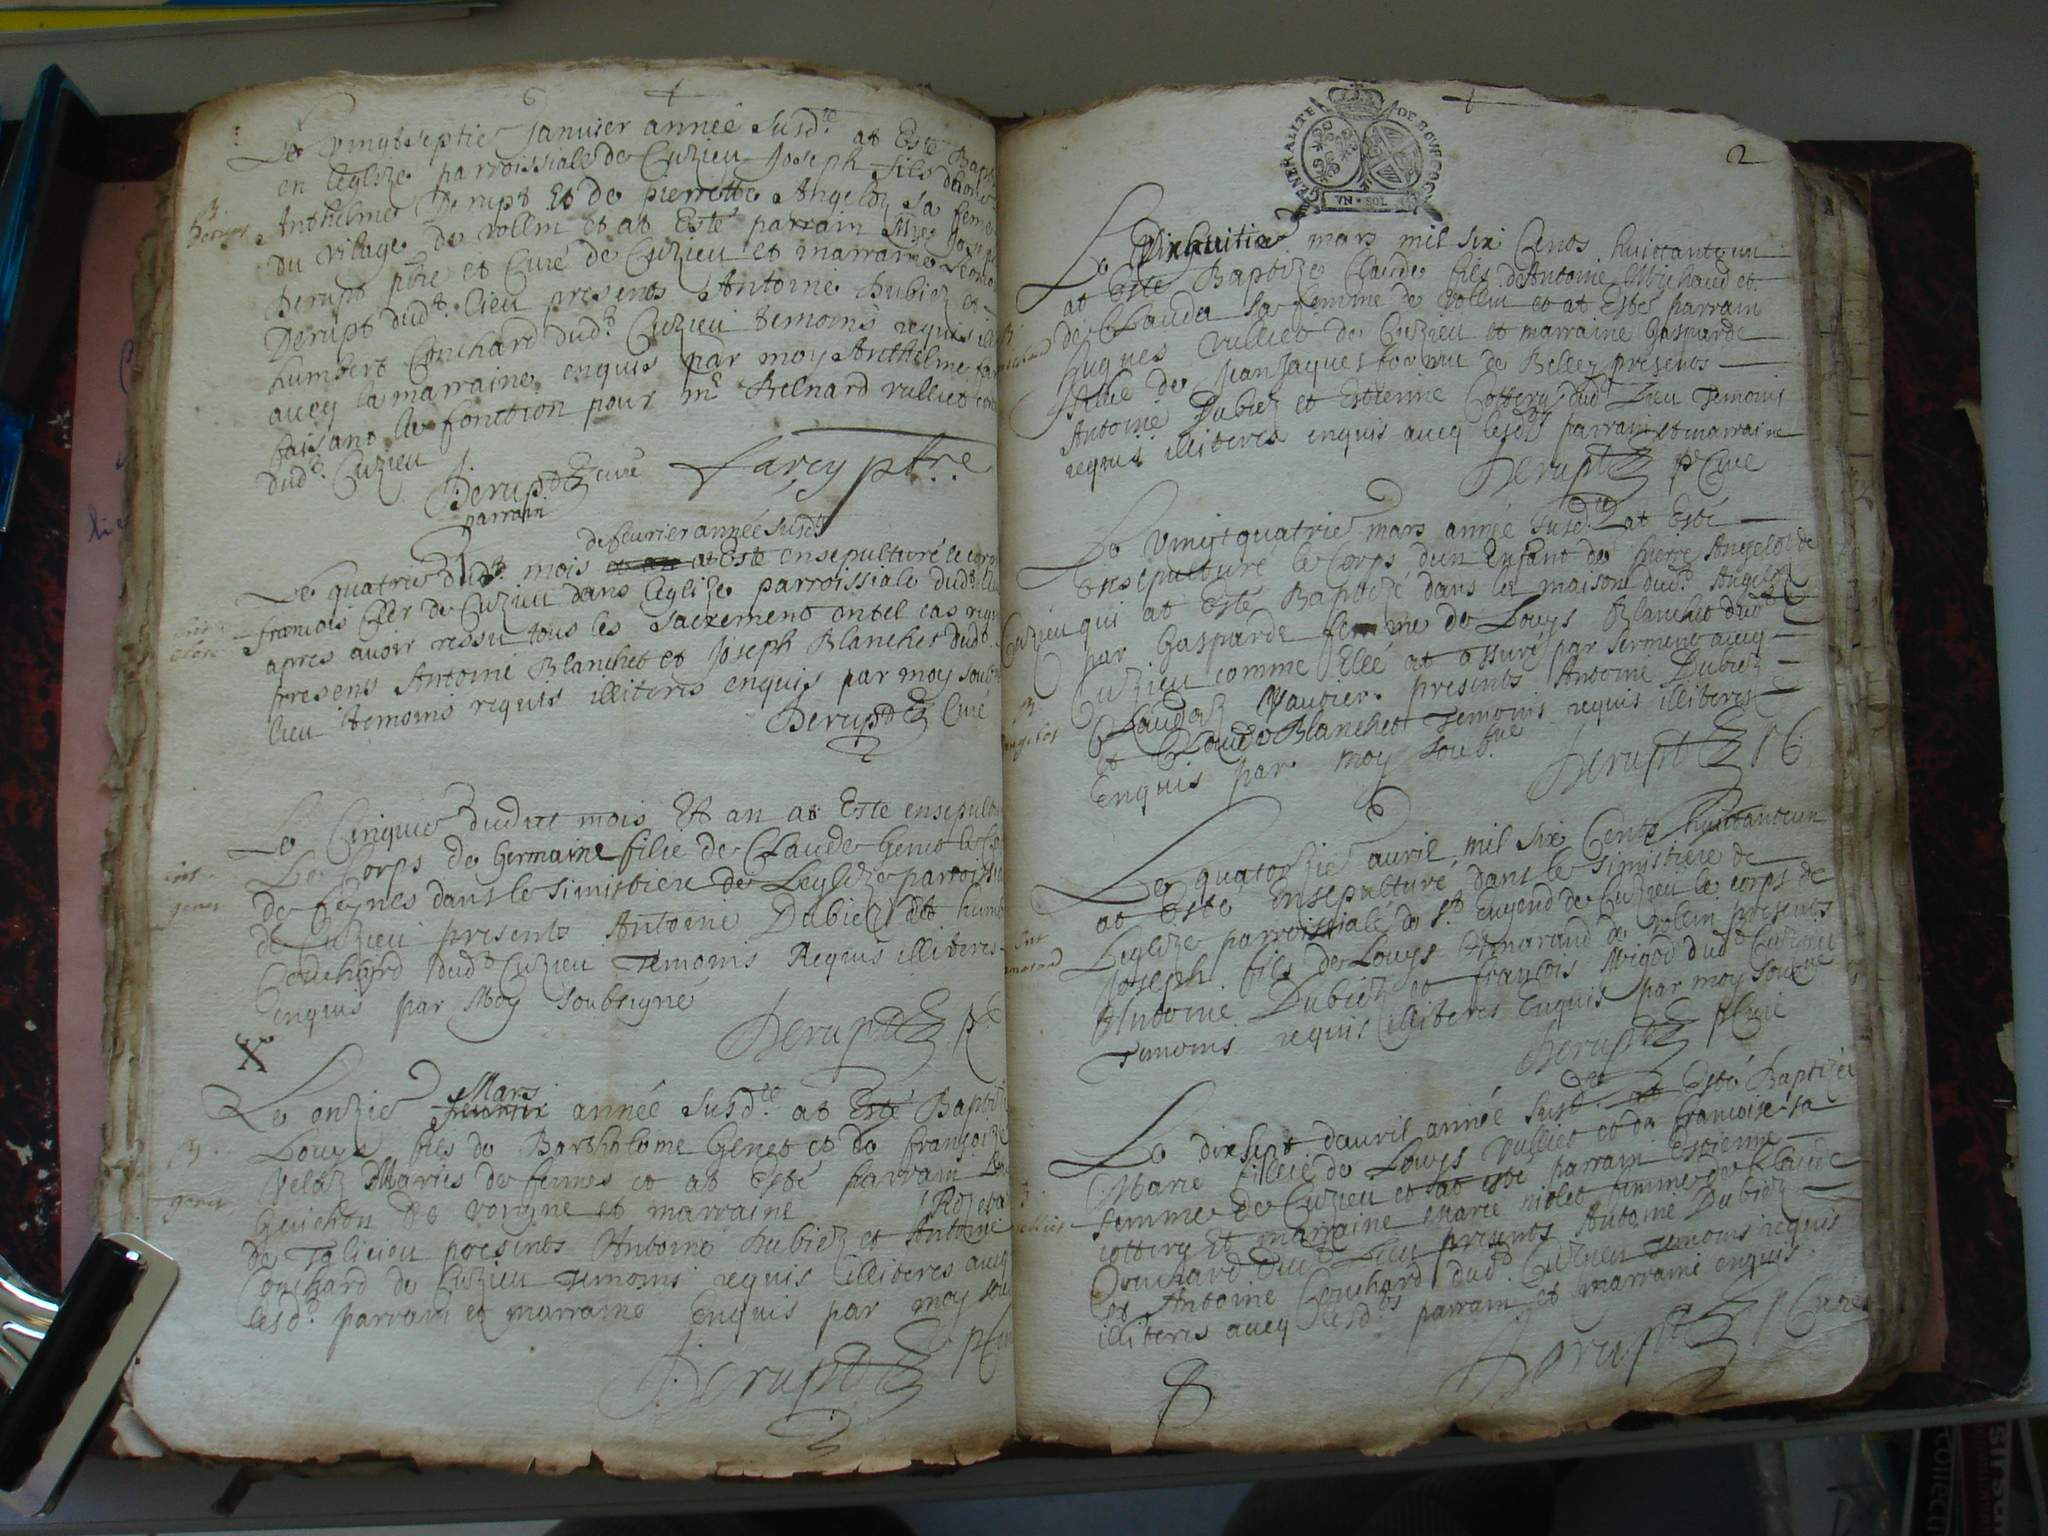 Le vingtseptie Janvier année susd.te at Esté Bapti
en léglize parroissiale de Cuzieu Joseph fils de
Anthelme Derupt Et de pierrette Angelot sa feme
du vilage de vollin et at Esté parrain Mre Jose
Derupt ptre et Curé de Cuzieu et marraine
Derupt dud.t lieu presents Antoine Dubiez et
humbert Couchard dud.t Cuzieu temoins requis ill
avey la marraine enquis par moy Anthelme far
faisant la fonction pour mre Bernard vulliet
dud.t Cuzieu
Derupt curé
parrain
farcy ptre
de feurier année susd.te
Le quatrie dud.t mois at Esté ensepulturé le corps
francois Cler de Cuzieu dans léglize parroissiale dud.t lieu
apres avoir ressu tous les sacrements en tel cas requ
presents Antoine Blanchet et Joseph Blanchet dud.t
lieu temoins requis illiteres enquis par moy
Derupt Curé
Le Cinquie dudict mois Et an at Esté ensepultu
Le Corps de Germaine filie de Claude Genet
de feynes dans le simistiere de Leglize parroissia
de Cuzieu presents Antoine Dubiez et humb
Couchard dud.t Cuzieu Temoins Requis illiteres
enquis par Moy soubsigné
Derupt
X
Le onzie Mars feurier année susd.te at Esté Baptizé
Louys fils de Bartholome Genet et de françoize
Velaz Maries de feynes et at Esté parrain
Guichon de vongne et marraine
de Talicieu presents Antoine Dubiez et Antoine
Couchard de Cuzieu temoins requis illiteres avey
lesd.ts parrain et marraine Enquis par moy
Derupt
GENERALITE DE BOURGOG
VN · SOL
2
Le Dixhuitie mars mil six Cents huittante un
at Esté Baptize Claude fils d'Antoine Michaud et
de Clauda sa femme de vollin et at Esté parrain
hugues vulliet de Cuzieu et marraine Gasparde
fillie de Jean Jaques fornier de Belley presents
Antoine Dubiez et Estienne Cottery dud.t Lieu Temoins
requis illiteres enquis avey lesd.ts parrain et marraine
Derupt p Cure
Le vingtquatrie mars année susd.te at Esté
Ensepulturé le Corps dun Enfant de pierre Angelot de
Cuzieu qui at Esté Baptizé dans la maison dud.t Angelot
par Gasparde femme de Louys Blanchet dud.t
Cuzieu comme Elle at assuré par serment avey
Claudaz Vautier presents Antoine Dubiez
et Claude Blanchet Temoins requis illiteres
Enquis par moy soub.né
Derupt p C
Le quatorzie auril mil six Cents huittanteun
at Esté Ensepulturé dans le simistiere de
Leglize parroissiale de st eugend de Cuzieu le corps de
Joseph fils de Louys Emarand de volein presents
Antoine Dubiez et francois Migod dud.t Cuzieu
Temoins requis illiteres Enquis par moy
Derupt p Curé
Le dixsept dauril année susd.te at Esté Baptizée
Marie fillie de Louys vulliet et de francoise sa
femme de Cuzieu et at esté parrain Estienne
cottery Et marraine marie niolet femme de Claude
Couchard dud.t Lieu presents Antoine Dubiez
et Antoine Couchard dud.t Cuzieu temoins requis
illiteres avey lesd.ts parrain et marraine enquis
Derupt p Curé